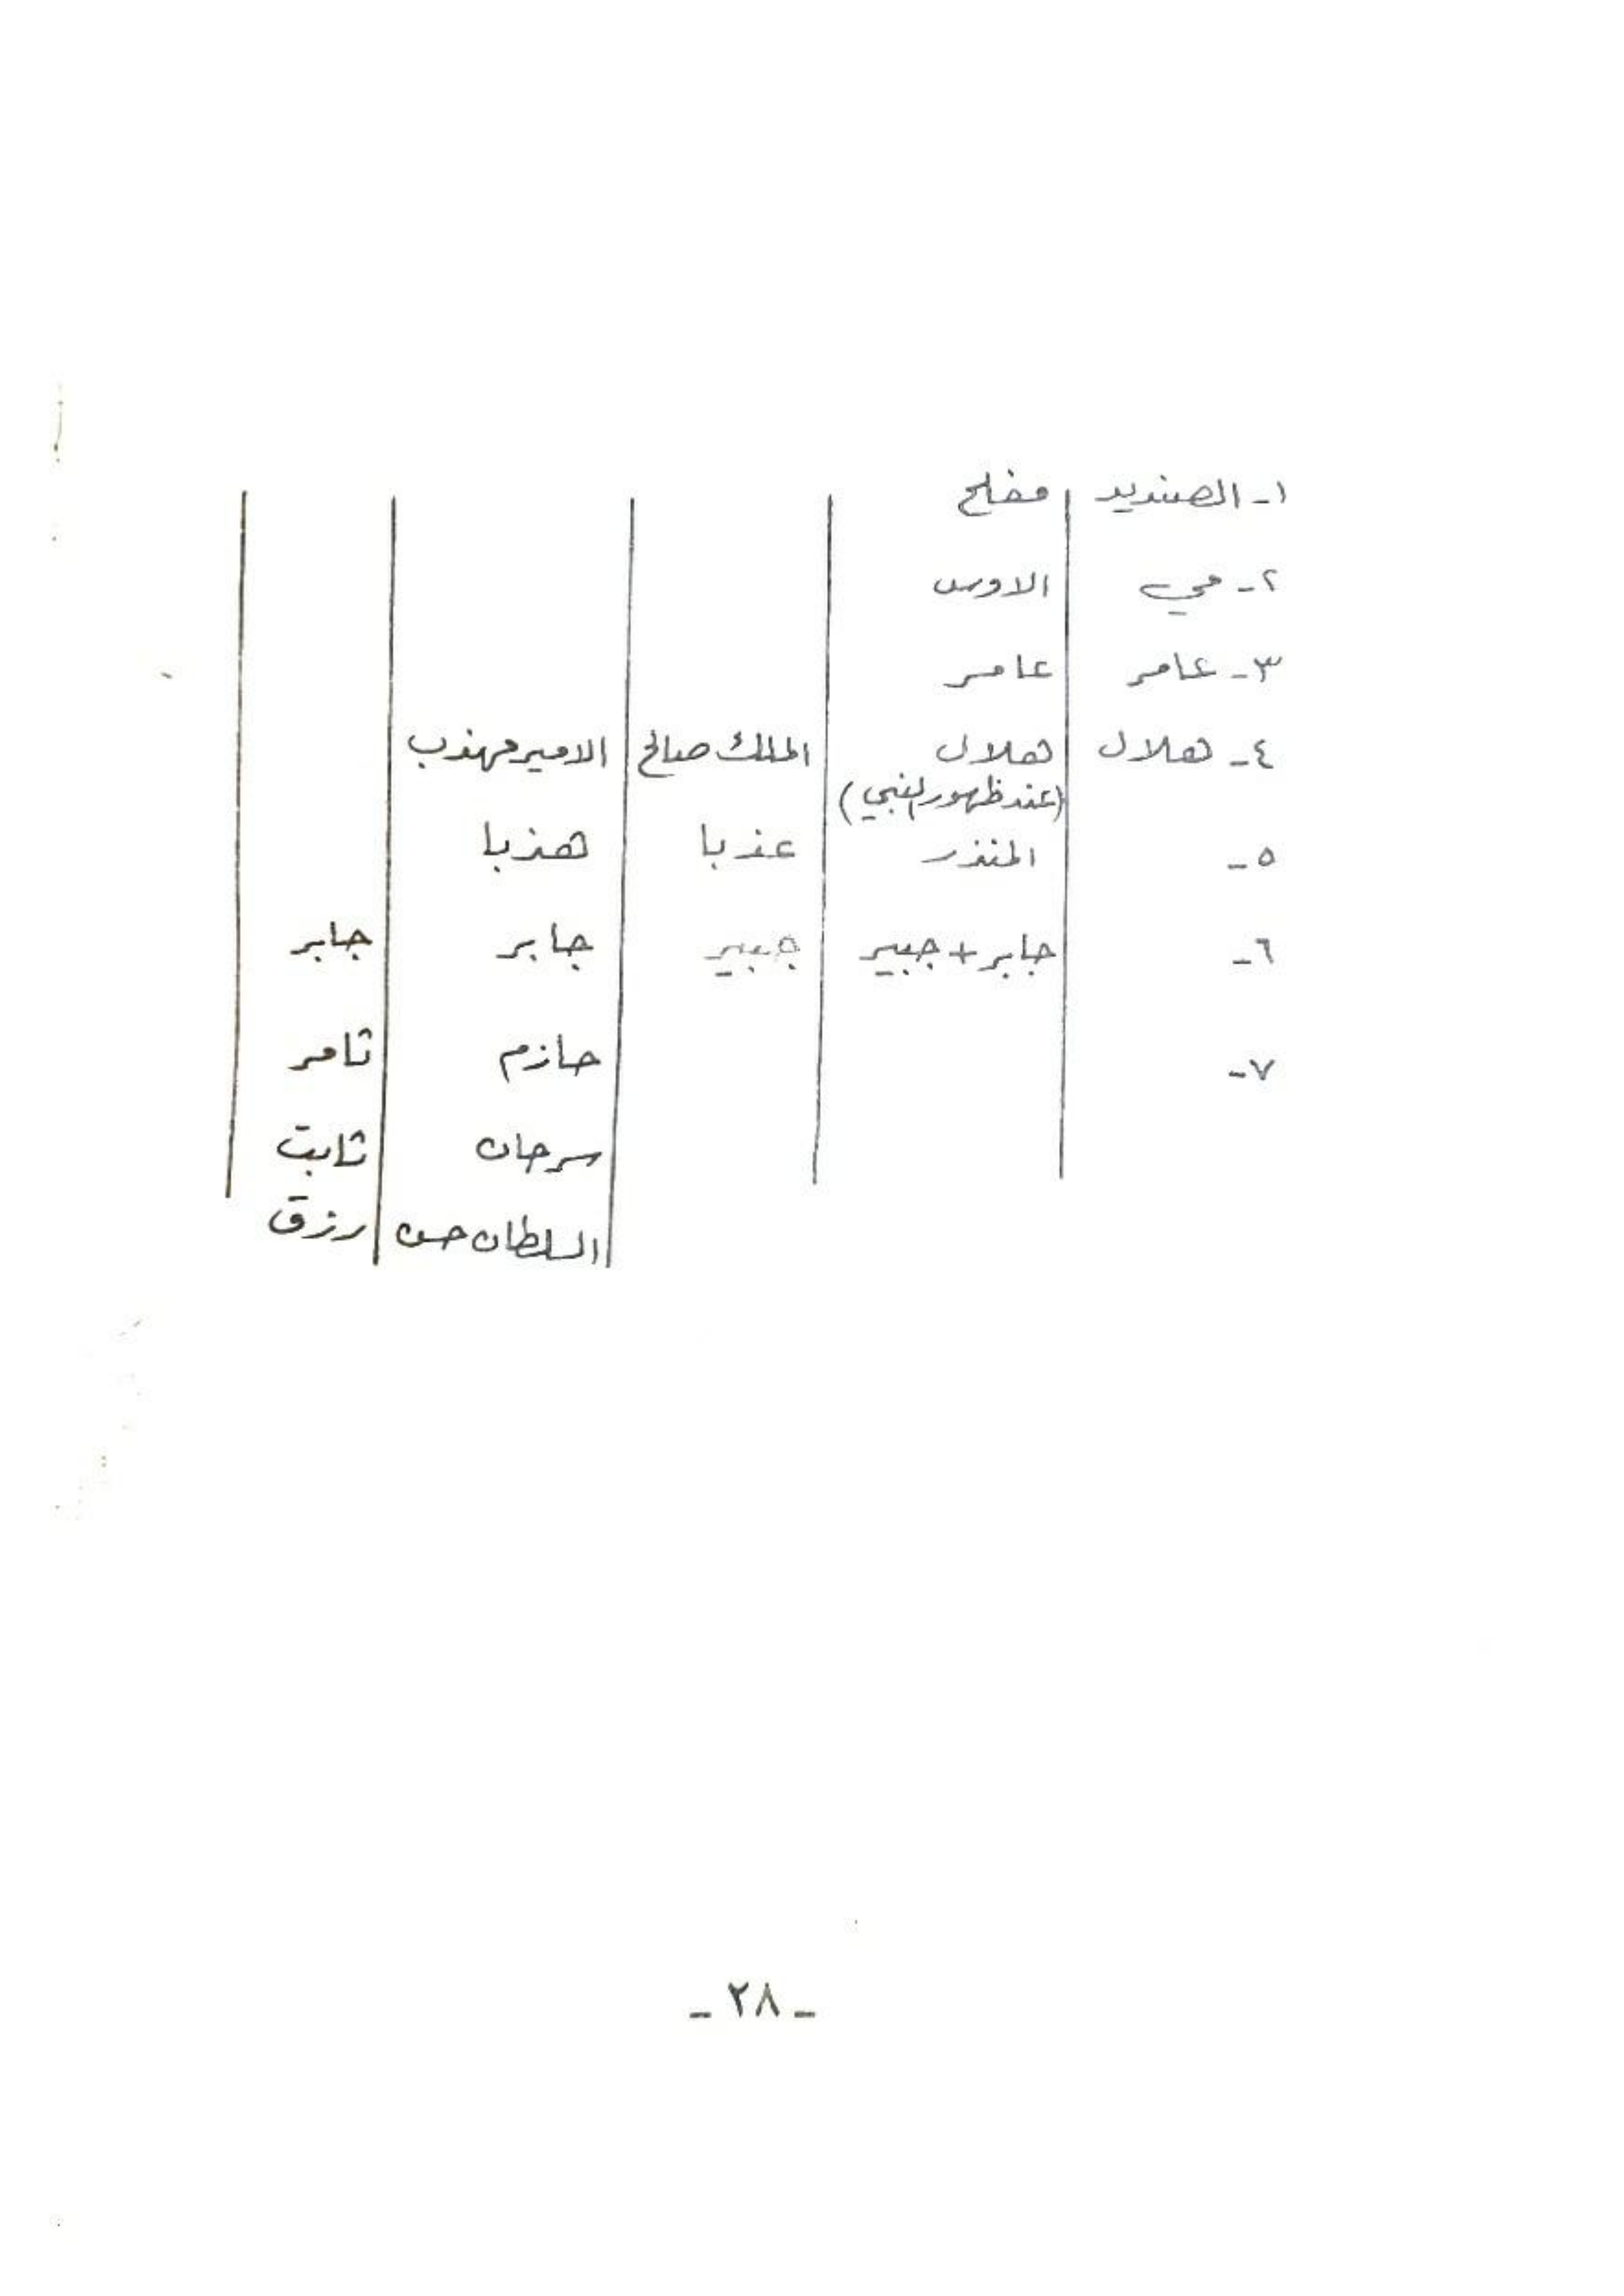 ١- الصنديد مفلح
٢- مي الاوس
٣- عامر عامر
٤- هلال هلال الملك صالح الامير مهذب
(عند ظهور النبي)
٥- المنذر عذبا هذبا
٦- جابر + جبير جبير جابر جابر
٧- حازم ثامر
سرحان ثابت
السلطان حسن رزق
- ٢٨ -